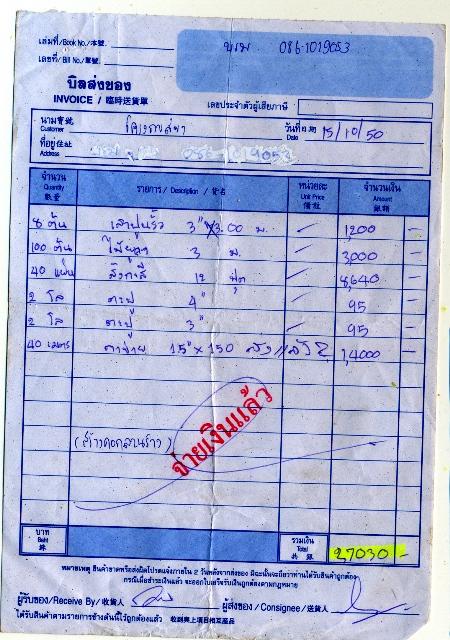 เล่มที่/Book No./本號.
เลขที่/Bill No./單號.
086-1019053
บิลส่งของ
INVOICE / 臨時送貨單
เลขประจำตัวผู้เสียภาษี
นาม 寳號
Customer
วันที่ 日期 15/10/50
Date
ที่อยู่ 住址
Address
จำนวน รายการ / Description / 貨名 หน่วยละ จำนวนเงิน
Quantity Unit Price Amount
數量 價社 銀額
8 ต้น 3" X3.00 ม. 1,200 —
100 ต้น 3 ม. 3,000 —
40 แผ่น สังกะสี 12 ฟุต 8,640 —
2 โล ตะปู 4" 95 —
2 โล ตะปู 3" 95 —
40 เมตร ตาข่าย 1.5" x 150 1,4000 —
จ่ายเงินแล้ว
บาท รวมเงิน
Baht Total 27030 -
銖 共銀
หมายเหตุ สินค้าขาดหรือส่งผิดโปรดแจ้งภายใน 2 วันหลังจากส่งของ มิฉะนั้นจะถือว่าท่านได้รับสินค้าถูกต้อง
กรณีเมื่อชำระเงินแล้ว จะออกใบเสร็จรับเงินถูกต้องตามกฎหมาย
ผู้รับของ/Receive By/收貨人 ผู้ส่งของ / Consignee / 送貨人
ได้รับสินค้าตามรายการข้างต้นนี้ไว้ถูกต้องแล้ว 收到與上項目相互產品